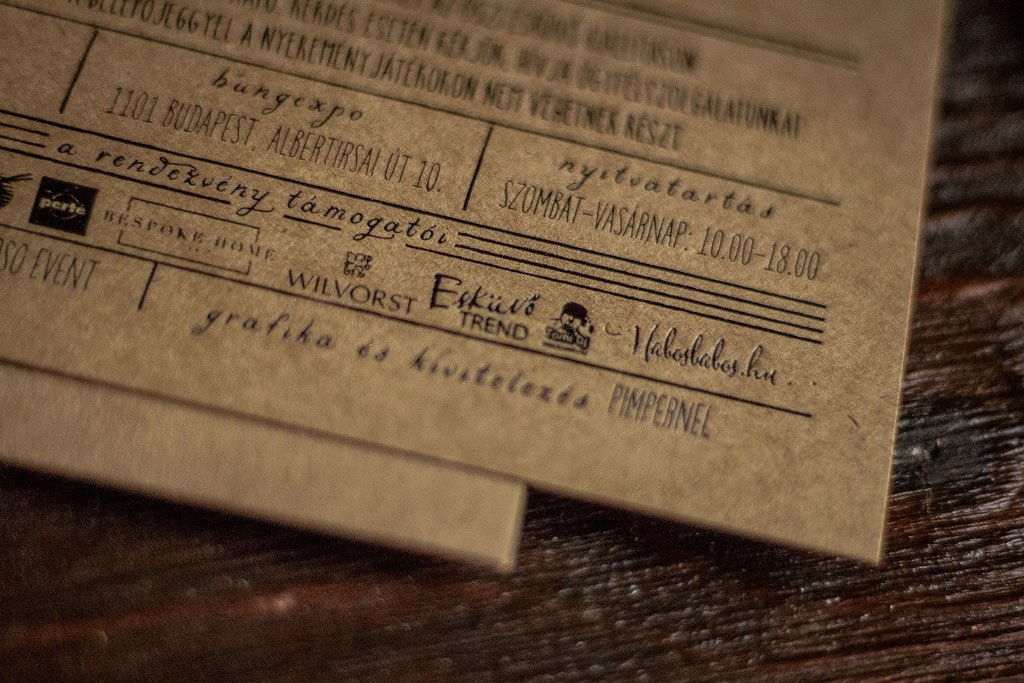 KÉRDÉS ESETÉN KÉRJÜK, HÍVJA ÜGYFÉLSZOLGÁLATUNKAT
A BELÉPŐJEGGYEL A NYEREMÉNYJÁTÉKOKON NEM VEHETNEK RÉSZT
hungexpo
1101 BUDAPEST, ALBERTIRSAI ÚT 10.
nyitvatartás
SZOMBAT-VASÁRNAP: 10.00-18.00
a rendezvény támogatói
perfe
BESPOKE HOME
WILVORST
Esküvő
TREND
Habosbabos.hu
EVENT
grafika és kivitelezés PIMPERNEL